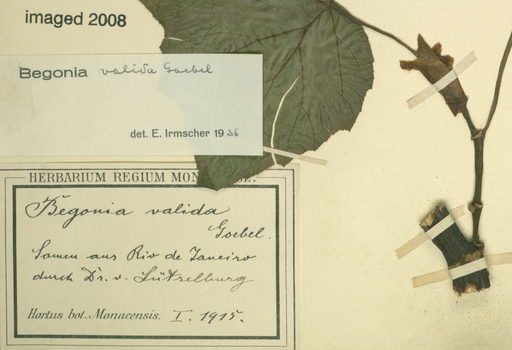 imaged 2008
Begonia valida Goebel
det. E. Irmscher 1936
HERBARIUM REGIUM MON E.
Begonia valida
Goebel.
Samen aus Rio de Janeiro
durch Dr. v. Lützelburg
Hortus bot. Monacensis. I. 1915.